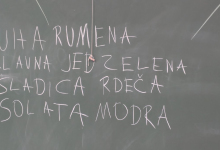 JUHA RUMENA
GLAVNA JED ZELENA
SLADICA RDEČA
SOLATA MODRA